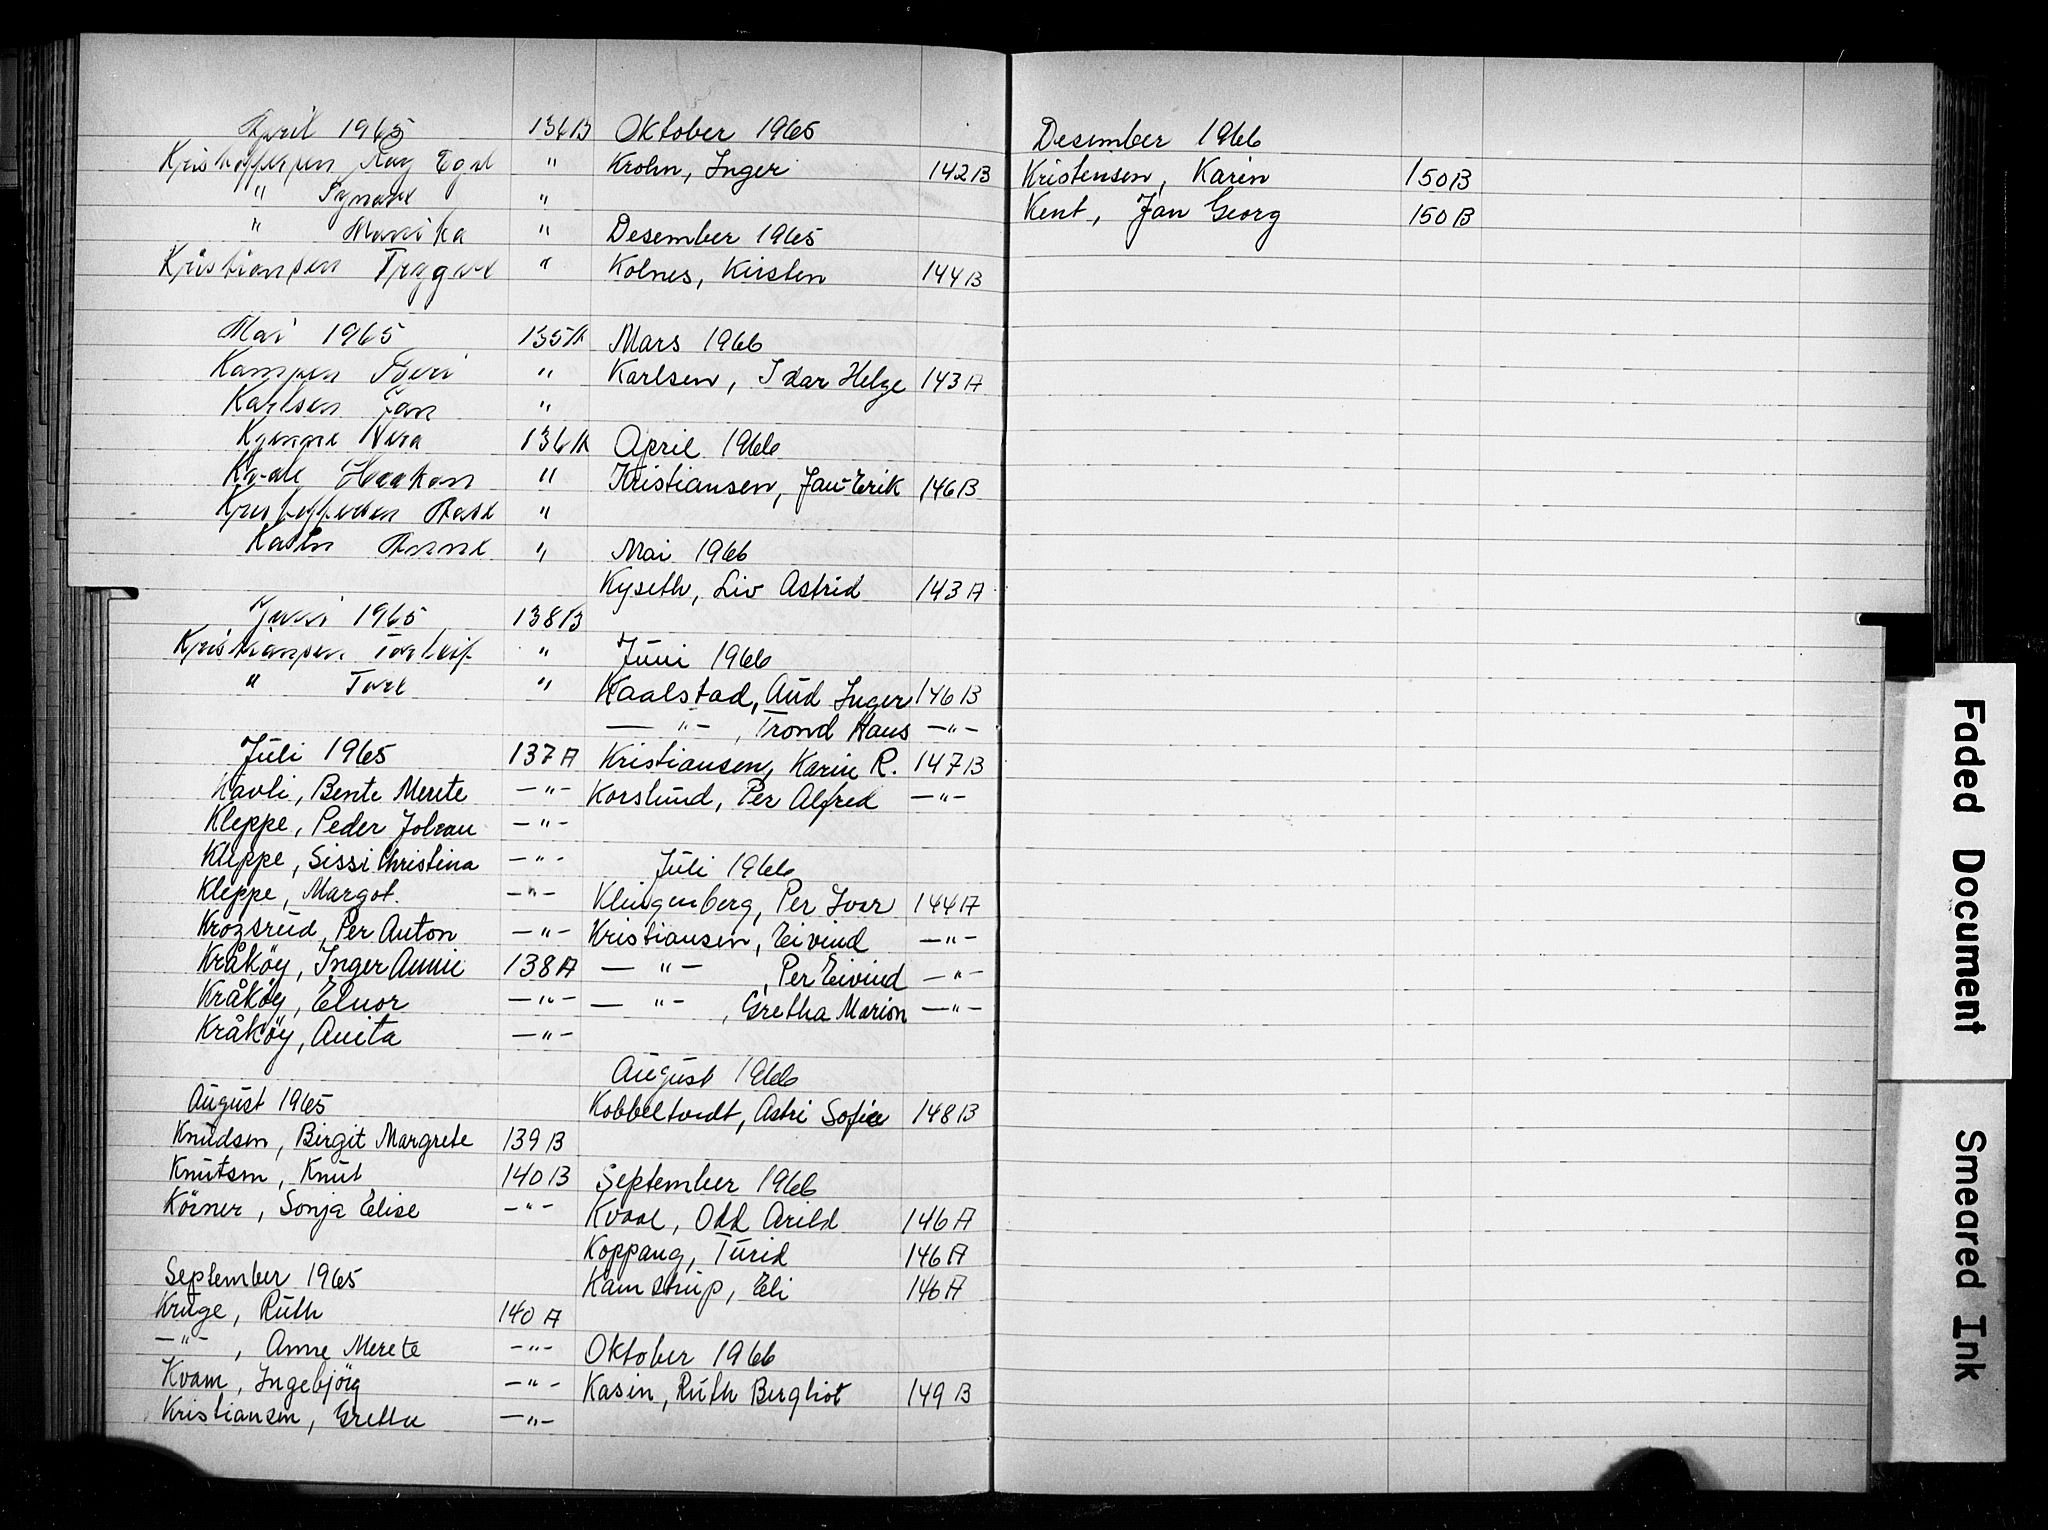 April 1965 136B
Kristoffersen Roy Egil "
" Synøve "
" Monika "
Kristiansen Trygve "
Mai 1965 135A
Kampen Siri "
Karlsen Jan "
Kjenne Vera 136A
Kvale Haakon "
Kristoffersen Aase "
Kasin Anne "
Juni 1965 138B
Kristiansen Torleif "
" Tove "
Juli 1965 137A
Kavli, Bente Merete —"—
Kleppe, Peder Johan —"—
Kleppe, Sissi Christina —"—
Kleppe, Margot. —"—
Krogsrud, Per Anton —"—
Kråköy, Inger Annie 138A
Kråköy, Elnor —"—
Kråköy, Anita —"—
August 1965
Knudsen, Birgit Margrete 139B
Knutsen, Knut 140B
Körner, Sonja Elise —"—
September 1965
Kruge, Ruth 140A
—"—, Anne Merete —"—
Kvam, Ingebjörg —"—
Kristiansen, Gretha —"—
Oktober 1965
Krohn, Inger 142B
Desember 1965
Kolnes, Kirsten 144B
Mars 1966
Karlsen, Idar Helge 143A
April 1966
Kristiansen, Jan-Erik 146B
Mai 1966
Kyseth, Liv Astrid 143A
Juni 1966
Kaalstad, Aud Inger 146B
—"—, Trond Hans —"—
Kristiansen, Karin R. 147B
Korslund, Per Alfred —"—
Juli 1966
Klingenberg, Per Ivar 144A
Kristiansen, Eivind —"—
—"—, Per Eivind —"—
—"—, Gretha Marion —"—
August 1966
Kobbeltvedt, Astri Sofie 148B
September 1966
Kvaal, Odd Arild 146A
Koppang, Turid 146A
Kamstrup, Eli 146A
Oktober 1966
Kasin, Ruth Bergliot 149B
Desember 1966
Kristensen, Karin 150B
Kent, Jan Georg 150B
Faded Document
Smeared Ink